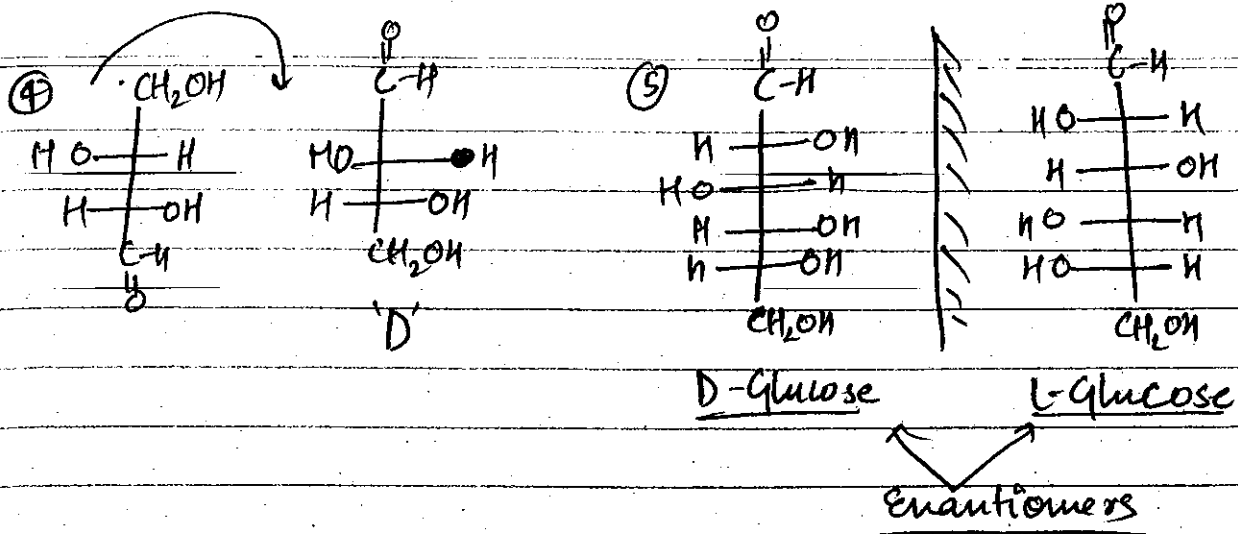 ④ CH₂OH
HO H
H OH
C-H
O
O
C-H
HO H
H OH
CH₂OH
'D'
⑤ O
C-H
H OH
HO H
H OH
H OH
CH₂OH
D-Glucose
O
C-H
HO H
H OH
HO H
HO H
CH₂OH
L-Glucose
Enantiomers